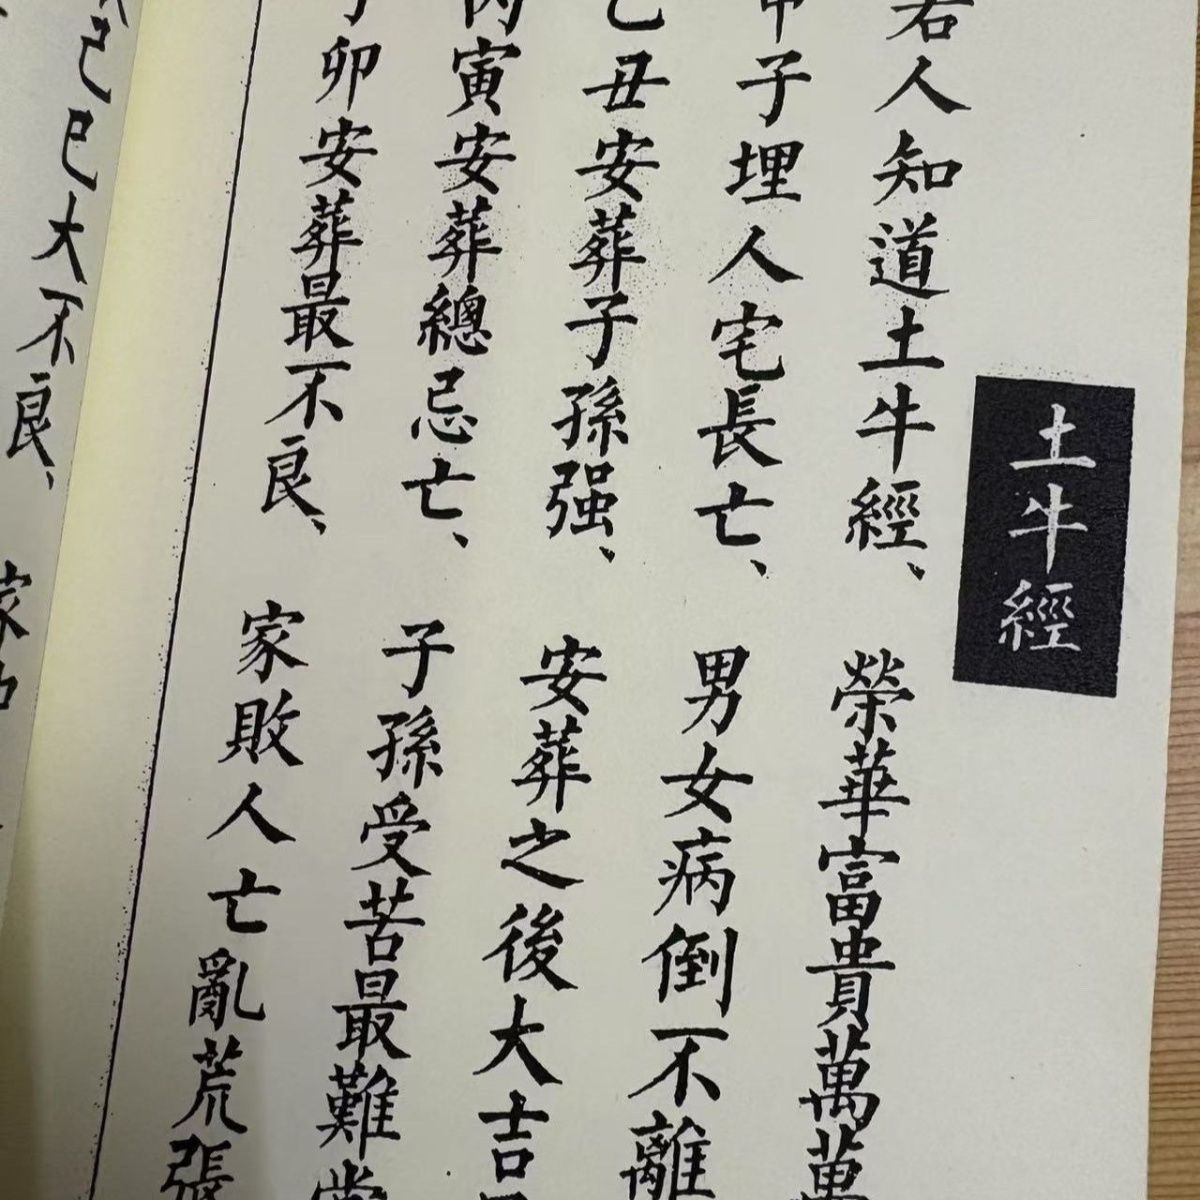 土牛經
若人知道土牛經、榮華富貴萬萬
甲子埋人宅長亡、男女病倒不離
乙丑安葬子孫强、安葬之後大吉
丙寅安葬總忌亡、子孫受苦最難當
卯安葬最不良、家敗人亡亂荒張
己巳大不良、家